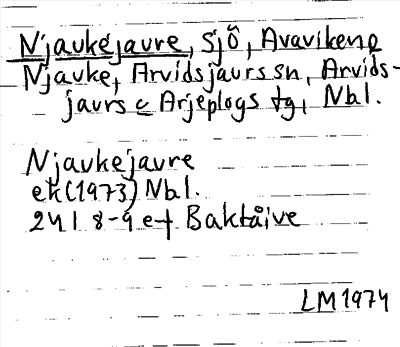 Njaukejaure, sjö, Avavikeno
Njauke, Arvidsjaurs sn, Arvids-
jaurs c Arjeplogs tg, Nbl.
Njaukejaure
ek (1973) Nbl.
24 I 8-9 e-f Baktåive
LM 1974